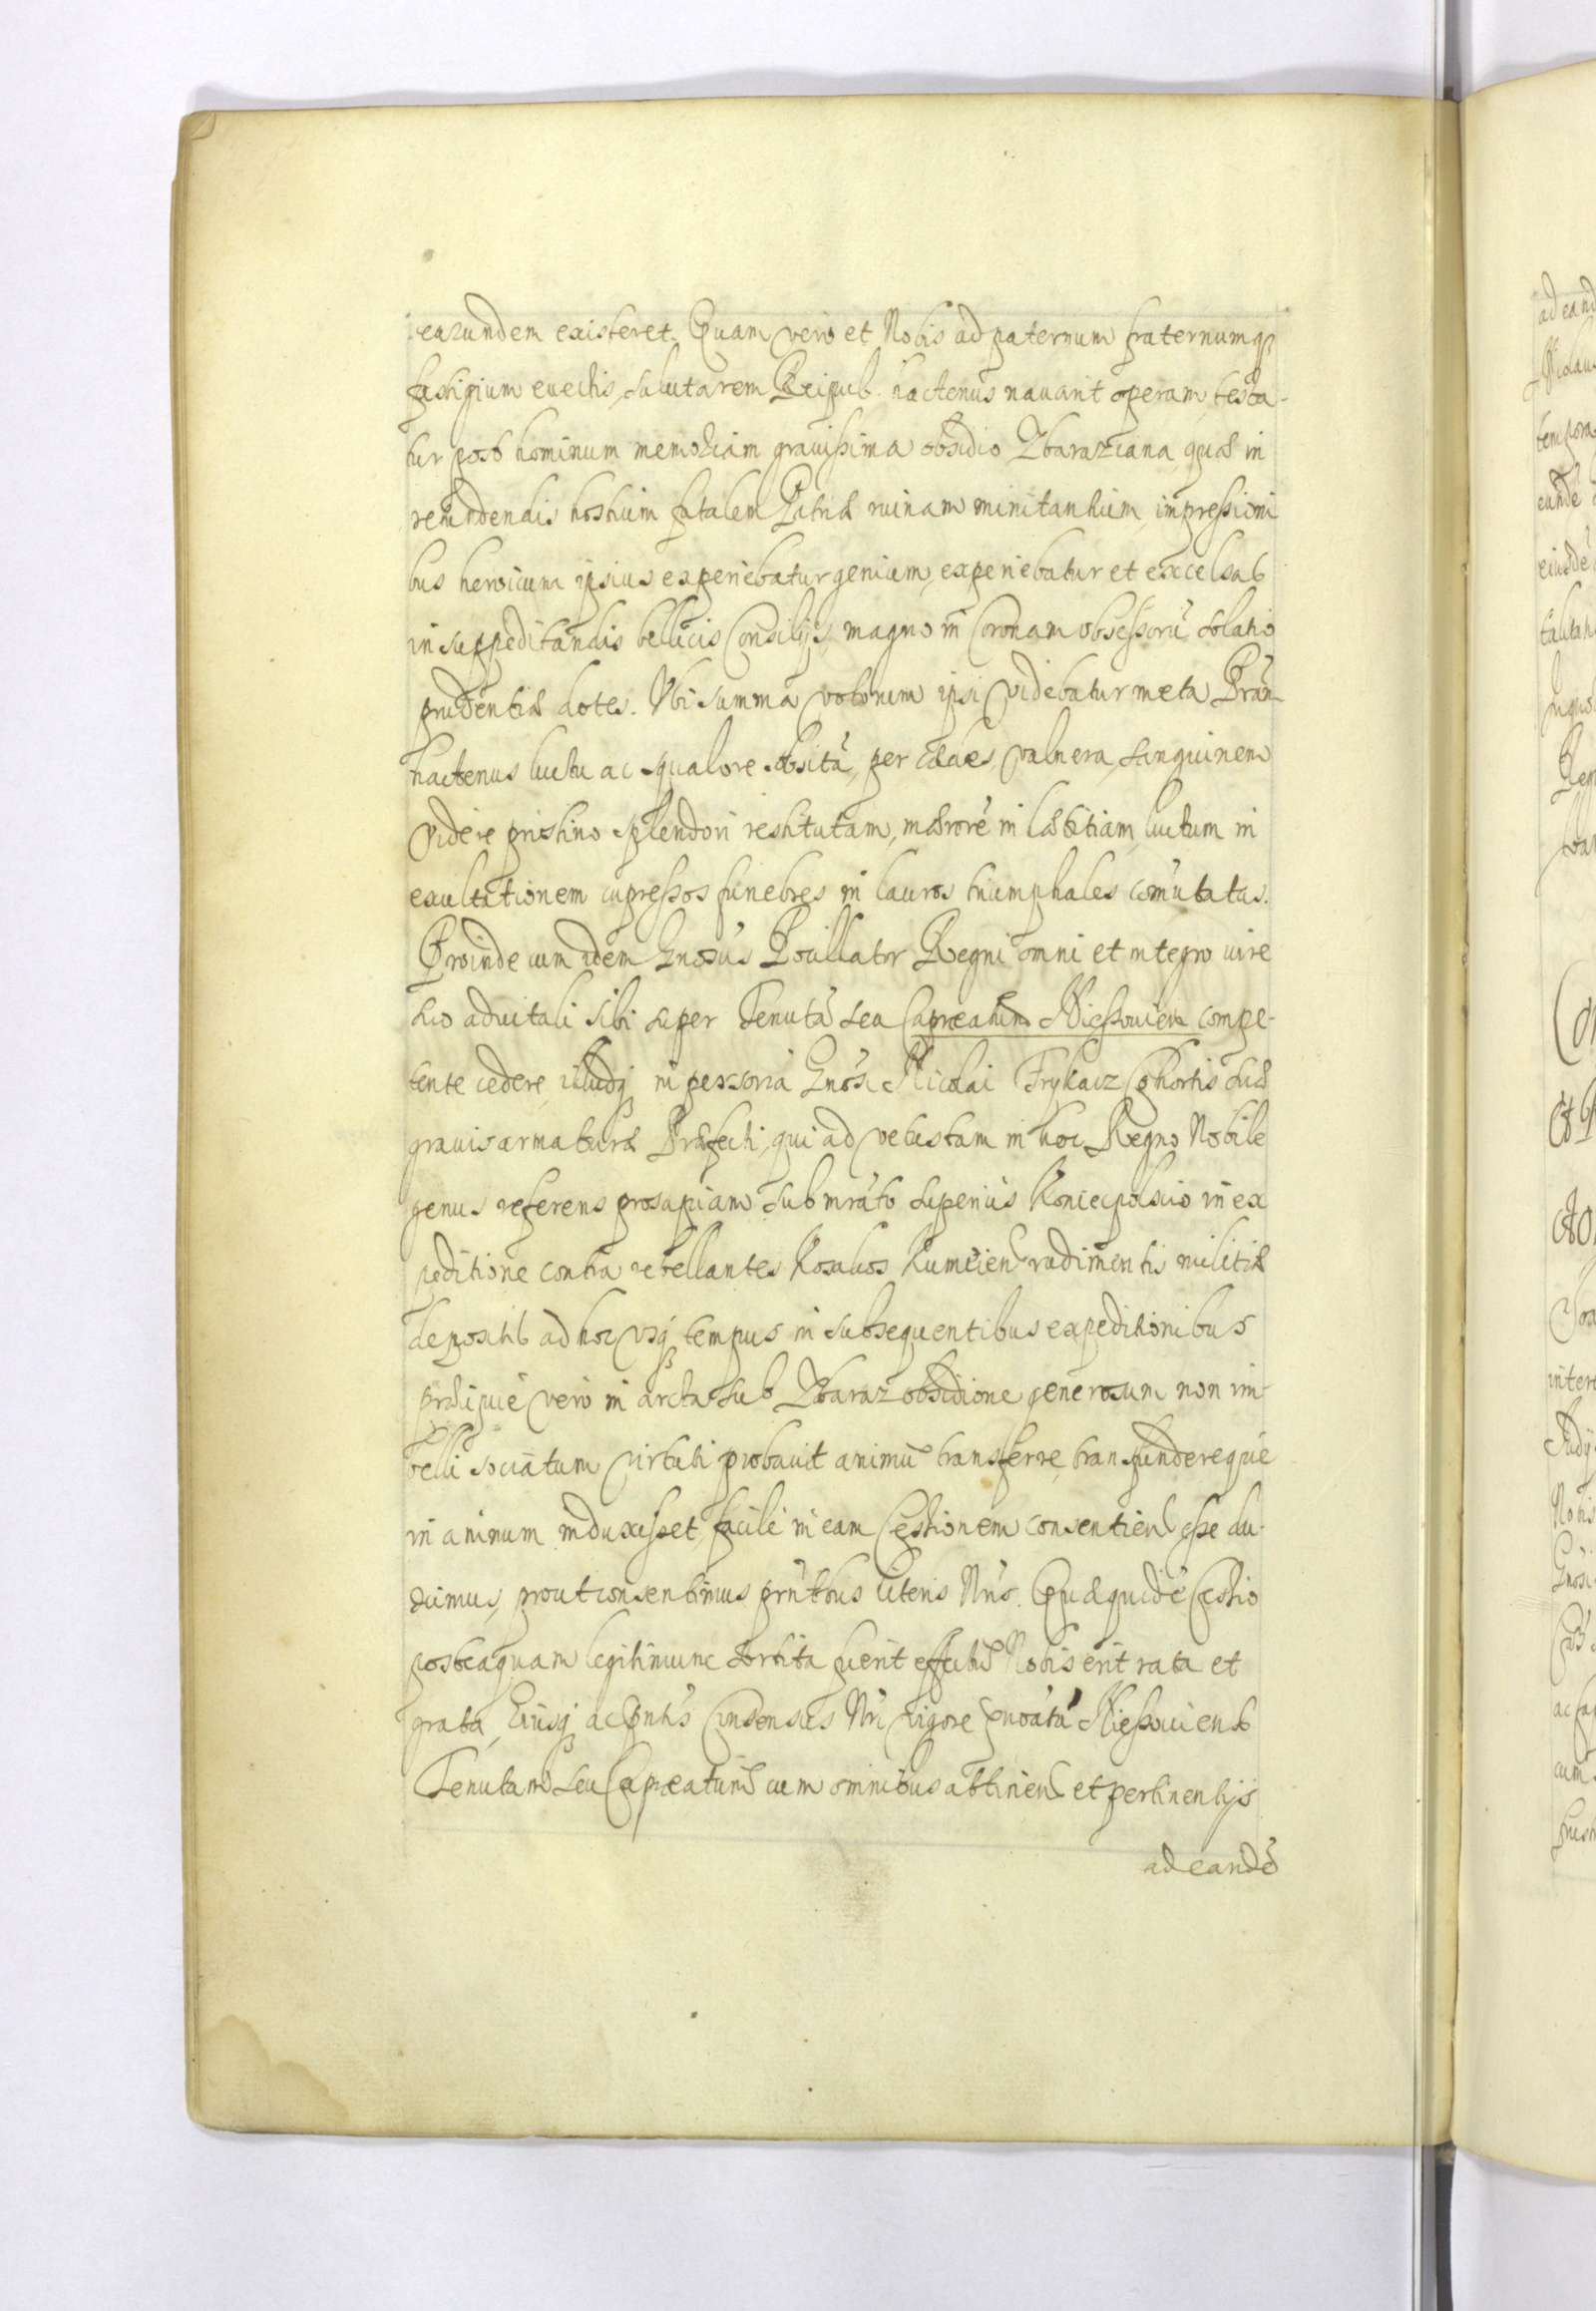 earundem existeret. Quam vero et Nobis ad paternum fraternumq
fastigium evectis, salutarem Reipub. hactenus navarit operam, testa-
tur post hominum memoriam gravissima obsidio Zbaraziana, quæ in
retundendis hostium fatalem Patriæ ruinam minitantium impressioni
bus heroicum ipsius experiebatur genium, experiebatur et excelsas
in suppeditandis bellicis Consilijs, magno in Coronam obsessorũ solatio
prudentiæ dotes. Vbi summa votorum ipsi videbatur meta Prãm
hactenus luctu ac squalore obsitã, per clades, vulnera, sanguinem
videre pristino splendori restitutam, mærorẽ in lætitiam, luctum in
exultationem cupressos funebres in lauros triumphales com̃utatas.
Proinde cum idem Gnosus Pocillator Regni omni et integro iure
suo advitali sibi super Tenutã seu Capræatum Nieszouien compe-
tente cedere, illudq in persona Gnosi Nicolai Frykacz Cohortis suæ
gravis armaturæ Præfecti, qui ad vetustam in hoc Regno Nobile
genus referens prosapiam sub mrãto superius Koniecpolscio in ex
peditione contra rebellantes Kosakos Kumeien rudimentis militiæ
depositis ad hoc vsq tempus in subsequentibus expeditionibus
præcipuè vero in arcta sub Zbaraz obsidione generosum non im-
belli sociatum virtuti probavit animũ transferre, transfundereque
in animum induxisset, facilè in eam Cessionem consentien esse du-
ximus, prout consentimus prñtibus literis Nris. Quæquidẽ Cessio
posteaquam legitimum sortita fuerit effectũ Nobis erit rata et
grata, Eiusq ac pntis Consensus Nri vigore pnoãtã Nieszouiens
Tenutam seu Capræatum cum omnibus attinen et pertinentijs
ad eandẽ